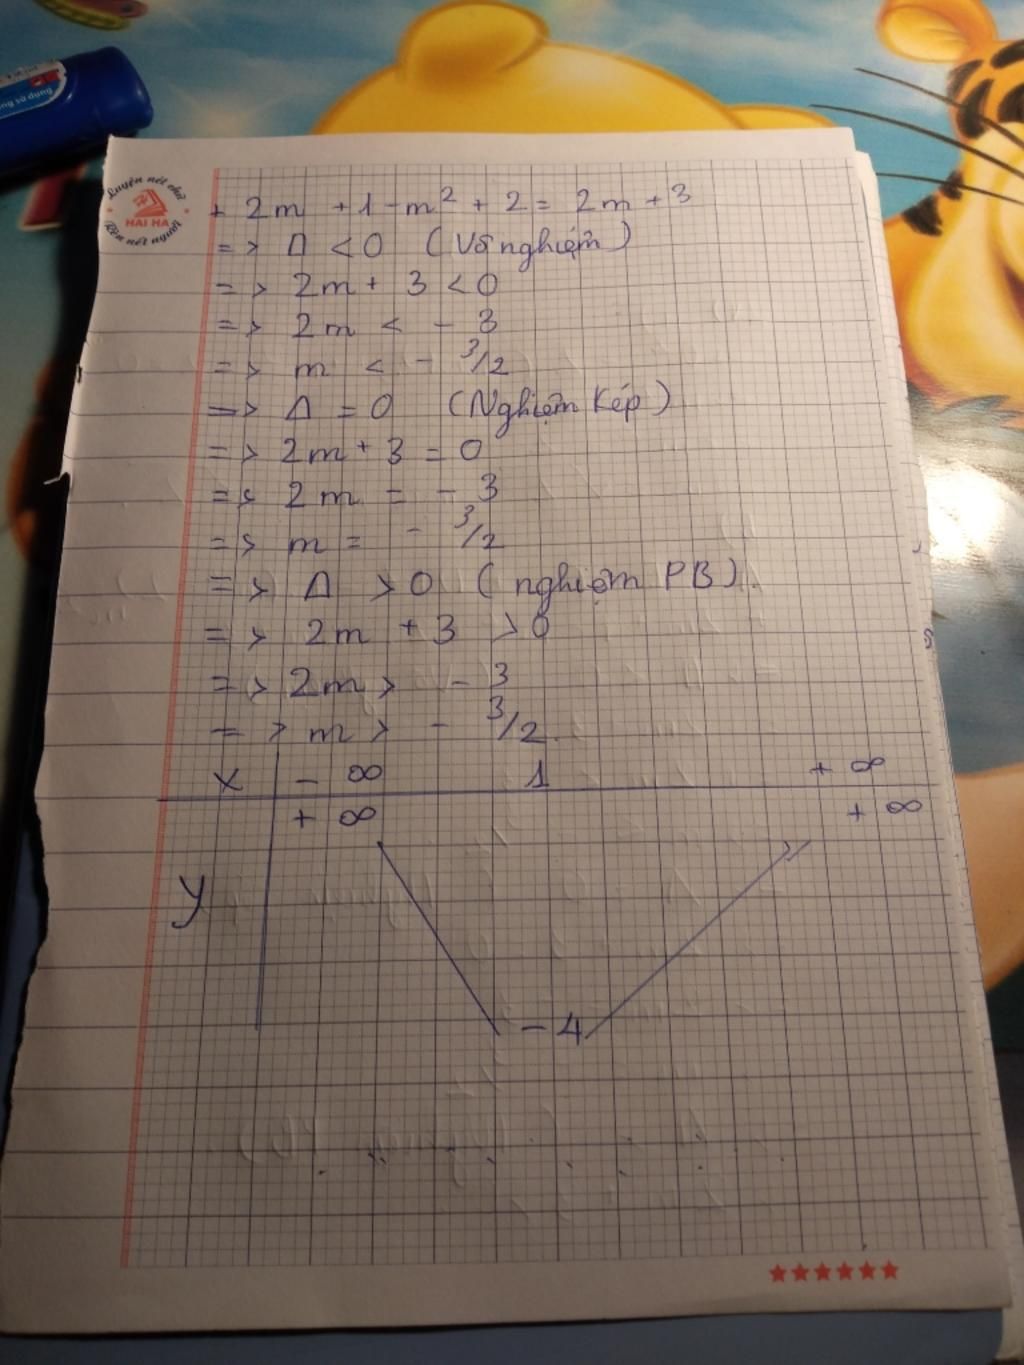 Luyện nét chữ
HẢI HÀ
Rèn nết người
+ 2m + 1 - m² + 2 = 2m + 3
=> Δ < 0 (Vô nghiệm)
=> 2m + 3 < 0
=> 2m < - 3
=> m < - 3/2
=> Δ = 0 (Nghiệm Kép)
=> 2m + 3 = 0
=> 2m = - 3
=> m = - 3/2
=> Δ > 0 (nghiệm PB).
=> 2m + 3 > 0
=> 2m > - 3
=> m > - 3/2.
x - ∞ 1 + ∞
+ ∞ + ∞
y
- 4